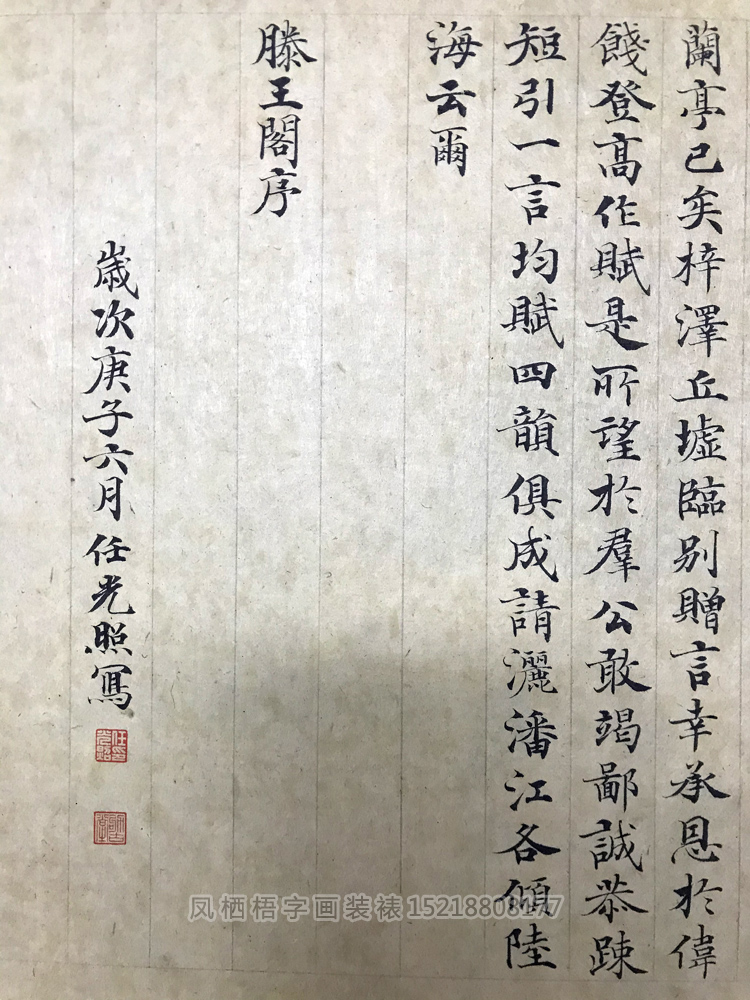 蘭亭已矣梓澤丘墟臨別贈言幸承恩於偉
餞登高作賦是所望於羣公敢竭鄙誠恭踈
短引一言均賦四韻俱成請灑潘江各傾陸
海云爾
滕王閣序
歲次庚子六月任光照寫
任光照印
凤栖梧字画装裱